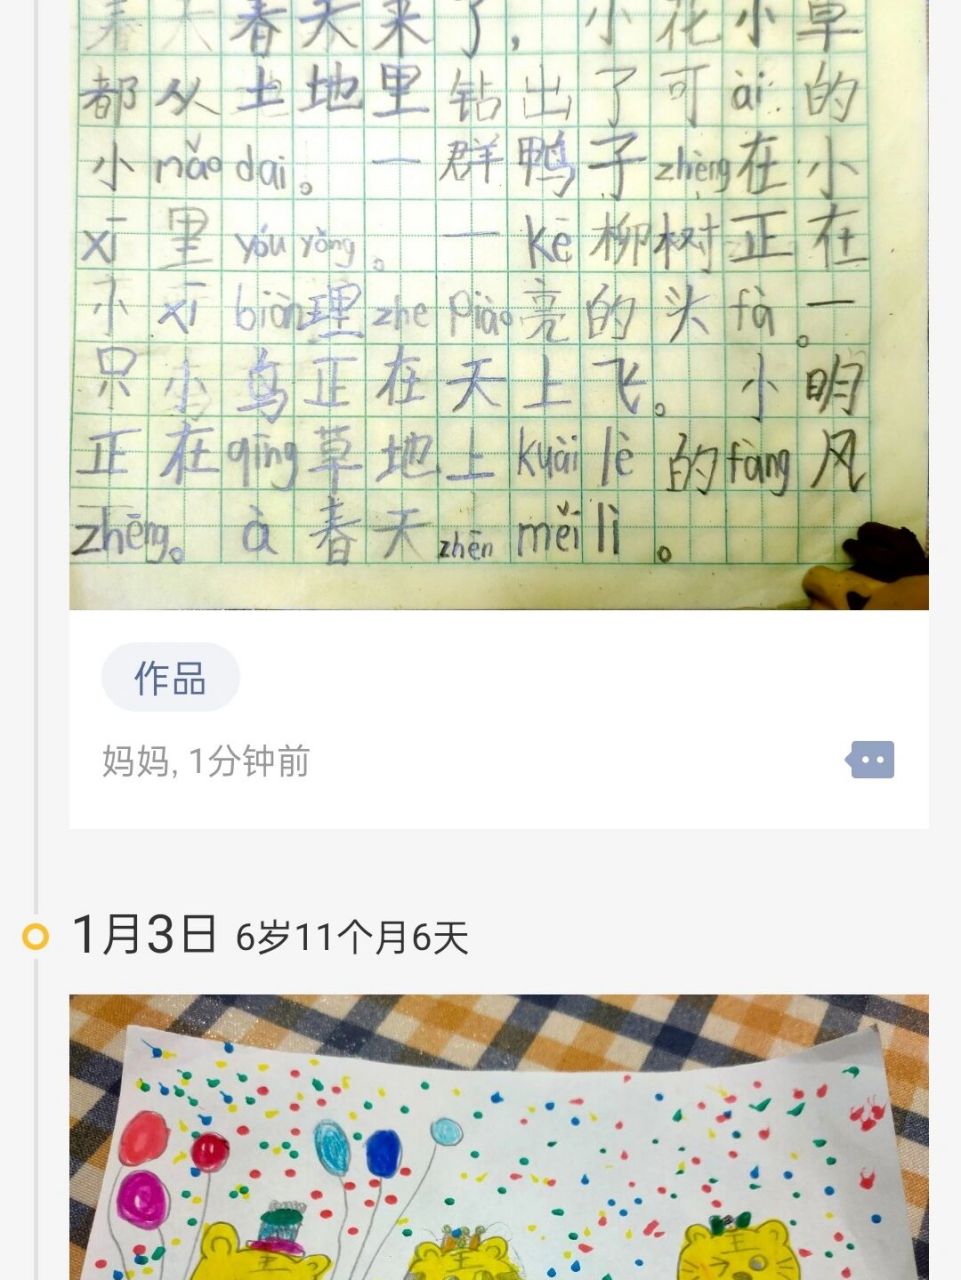 春天春天来了，小花小草
都从土地里钻出了可ài的
小nǎo dai。一群鸭子zhèng在小
xī里yóu yǒng。一kē柳树正在
小xī biān理zhe piào亮的头fà。一
只小鸟正在天上飞。小明
正在qīng草地上kuài lè的fàng风
zhēng。à春天zhēn měi lì。
作品
妈妈, 1分钟前
1月3日 6岁11个月6天
王
王
王